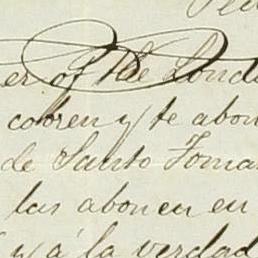 er of the Londo
cobren y te abon
de Santo Tomas
las abonen en
y á la verdad